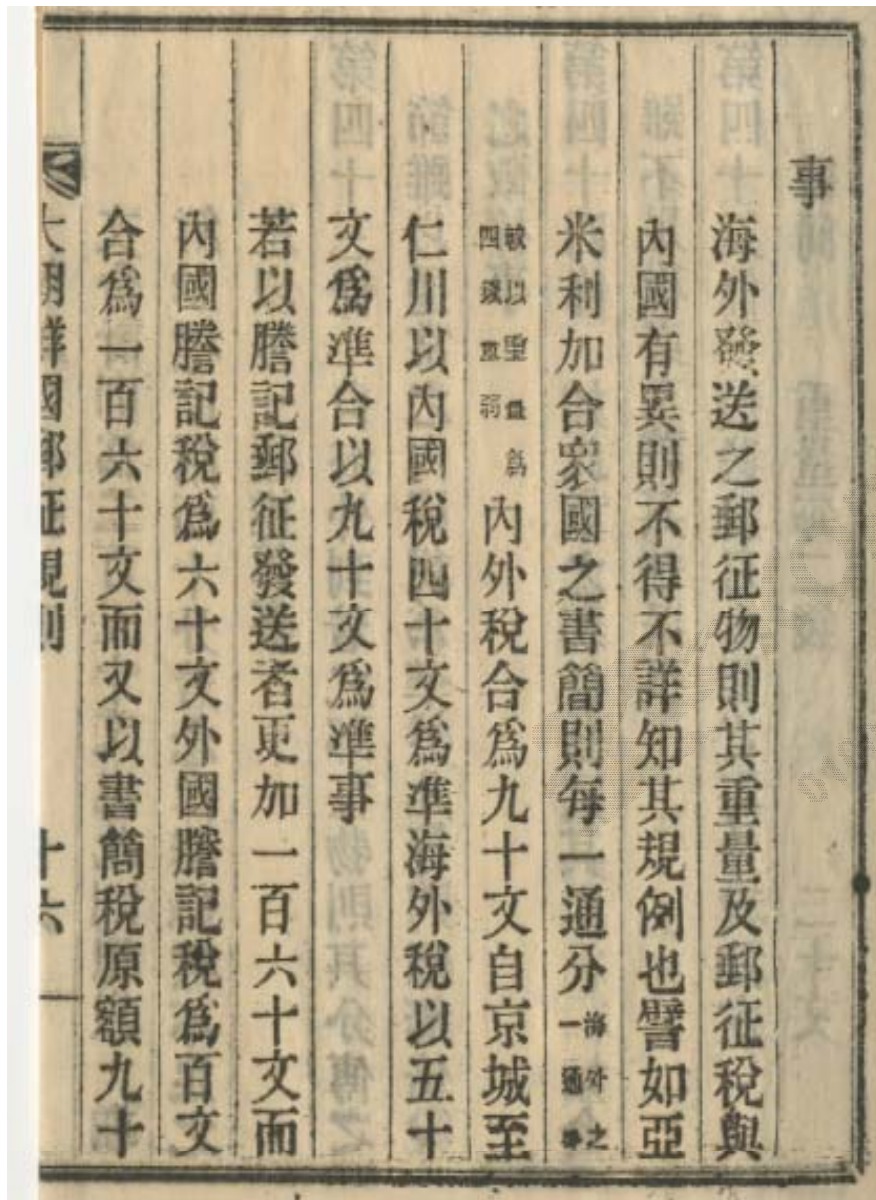 事
海外發送之郵征物則其重量及郵征稅與
內國有異則不得不詳知其規例也譬如亞
米利加合衆國之書簡則每一通分海外之一通
以重量爲四錢重弱內外稅合爲九十文自京城至
仁川以內國稅四十文爲準海外稅以五十
文爲準合以九十文爲準事
若以謄記郵征發送者更加一百六十文而
內國謄記稅爲六十文外國謄記稅爲百文
合爲一百六十文而又以書簡稅原額九十
大朝鮮國郵征規則 十六